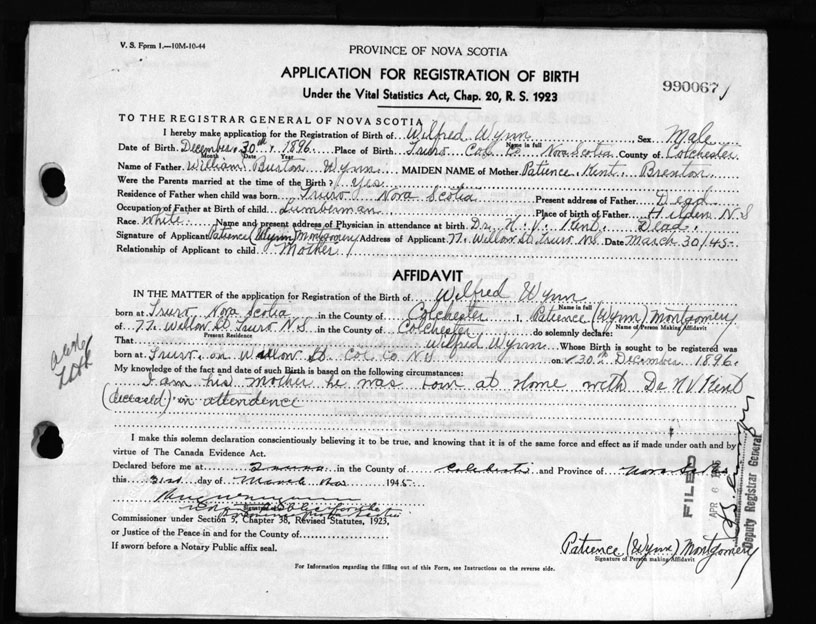 V. S. Form 1.—10M-10-44
PROVINCE OF NOVA SCOTIA
APPLICATION FOR REGISTRATION OF BIRTH
990067
Under the Vital Statistics Act, Chap. 20, R. S. 1923
TO THE REGISTRAR GENERAL OF NOVA SCOTIA
I hereby make application for the Registration of Birth of Wilfred Wynn Sex Male
Name in full
Date of Birth. December 30th, 1896. Place of Birth. Truro Col. Co Nova Scotia County of Colchester
Month Date Year
Name of Father William Burton Wynn MAIDEN NAME of Mother Patience Kent Brenton
Were the Parents married at the time of the Birth? Yes
Residence of Father when child was born Truro Nova Scotia Present address of Father Dead
Occupation of Father at Birth of child Lumberman Place of birth of Father Hilden N.S
Race White Name and present address of Physician in attendance at birth Dr. H. V. Kent Dead.
Signature of Applicant Patience (Wynn) Montgomery Address of Applicant 77 Willow St Truro N.S. Date March 30/45
Relationship of Applicant to child Mother
AFFIDAVIT
IN THE MATTER of the application for Registration of the Birth of Wilfred Wynn
Name in full
born at Truro, Nova Scotia in the County of Colchester I, Patience (Wynn) Montgomery
Name of Person Making Affidavit
of 77 Willow St Truro N.S in the County of Colchester do solemnly declare:
Present Residence
That Wilfred Wynn Whose Birth is sought to be registered was
born at Truro, on Willow St Col Co N.S on 30th December 1896.
My knowledge of the fact and date of such Birth is based on the following circumstances:
I am his mother he was born at Home with Dr H V Kent
(deceased) in attendence
I make this solemn declaration conscientiously believing it to be true, and knowing that it is of the same force and effect as if made under oath and by
virtue of The Canada Evidence Act.
Declared before me at Truro in the County of Colchester and Province of Nova Scotia
this 31st day of March 1945
Commissioner under Section 5, Chapter 38, Revised Statutes, 1923,
or Justice of the Peace in and for the County of
If sworn before a Notary Public affix seal.
Patience (Wynn) Montgomery
Signature of Person making Affidavit
For Information regarding the filling out of this Form, see Instructions on the reverse side.
FILED
APR 6
Deputy Registrar General